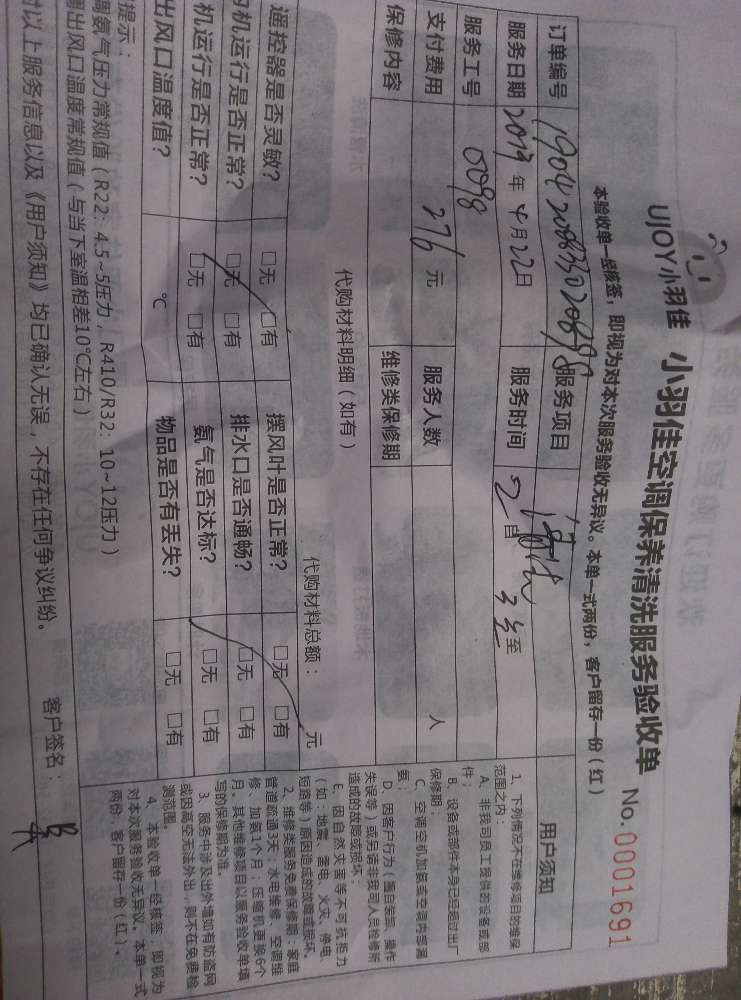 UJOY小羽佳 小羽佳空调保养清洗服务验收单 No. 0001691
本验收单一经核签，即视为对本次服务验收无异议。本单一式两份，客户留存一份（红）
订单编号 服务项目
服务日期 2019 年 4 月 22 日 服务时间 2 自 3 至
服务工号 0098
支付费用 276 元 服务人数 人
保修内容 维修类保修期
代购材料明细（如有） 代购材料总额： 元
遥控器是否灵敏？ □无 □有 摆风叶是否正常？ □无 □有
机运行是否正常？ □无 □有 排水口是否通畅？ □无 □有
机运行是否正常？ □无 □有 氨气是否达标？ □无 □有
出风口温度值？ ℃ 物品是否有丢失？ □无 □有
提示：
调氨气压力常规值（R22：4.5~5压力，R410/R32：10~12压力）
调出风口温度常规值（与当下室温相差10℃左右）
对以上服务信息以及《用户须知》均已确认无误，不存在任何争议纠纷。 客户签名：
用户须知
1、下列情况不在维修项目的维保
范围之内：
A、非我司员工提供的设备或部
件；
B、设备或部件本身已经超过出厂
保修期；
C、空调空机加氨或空调内部漏
氨；
D、因客户行为（擅自装卸、操作
失误等）或另请非我司人员检修所
造成的故障或损坏；
E、因自然灾害等不可抗拒力
（如：地震、雷电、火灾、停电、
短路等）原因造成的故障或损坏。
2、维修类服务免费保修期：家庭
管道疏通3天；水电维修、空调维
修、加氨1个月；压缩机更换6个
月。其他维修项目以服务验收单填
写的保修期为准。
3、服务中涉及出外墙如有防盗网
或因高空无法外出，则不在免费检
测范围。
4、本验收单一经核签，即视为
对本次服务验收无异议。本单一式
两份，客户留存一份（红）。